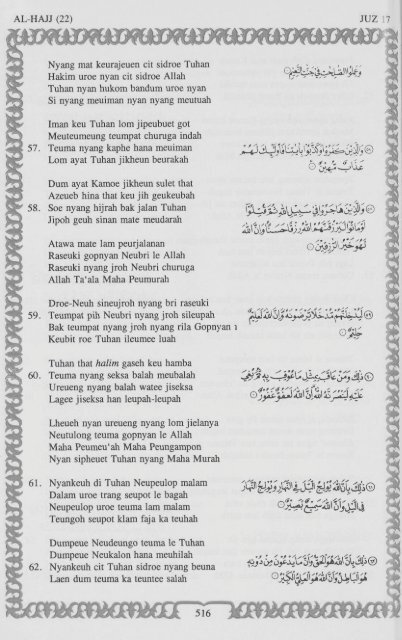 AL-HAJJ (22) JUZ 17
Nyang mat keurajeuen cit sidroe Tuhan
Hakim uroe nyan cit sidroe Allah
Tuhan nyan hukom bandum uroe nyan
Si nyang meuiman nyan nyang meutuah
وَعَمِلُوا الصَّالِحَاتِ فِي جَنَّاتِ النَّعِيمِ
Iman keu Tuhan lom jipeubuet got
Meuteumeung teumpat churuga indah
57. Teuma nyang kaphe hana meuiman
Lom ayat Tuhan jikheun beurakah
وَالَّذِينَ كَفَرُوا وَكَذَّبُوا بِآيَاتِنَا فَأُولَٰئِكَ لَهُمْ
عَذَابٌ مُّهِينٌ
Dum ayat Kamoe jikheun sulet that
Azeueb hina that keu jih geukeubah
58. Soe nyang hijrah bak jalan Tuhan
Jipoh geuh sinan mate meudarah
وَالَّذِينَ هَاجَرُوا فِي سَبِيلِ اللَّهِ ثُمَّ قُتِلُوا
أَوْ مَاتُوا لَيَرْزُقَنَّهُمُ اللَّهُ رِزْقًا حَسَنًا وَإِنَّ اللَّهَ
لَهُوَ خَيْرُ الرَّازِقِينَ
Atawa mate lam peurjalanan
Raseuki gopnyan Neubri le Allah
Raseuki nyang jroh Neubri churuga
Allah Ta'ala Maha Peumurah
Droe-Neuh sineujroh nyang bri raseuki
59. Teumpat pih Neubri nyang jroh sileupah
Bak teumpat nyang jroh nyang rila Gopnyan
Keubit roe Tuhan ileumee luah
لَيُدْخِلَنَّهُم مُّدْخَلًا يَرْضَوْنَهُ وَإِنَّ اللَّهَ لَعَلِيمٌ
حَلِيمٌ
Tuhan that halim gaseh keu hamba
60. Teuma nyang seksa balah meubalah
Ureueng nyang balah watee jiseksa
Lagee jiseksa han leupah-leupah
ذَٰلِكَ وَمَنْ عَاقَبَ بِمِثْلِ مَا عُوقِبَ بِهِ ثُمَّ بُغِيَ
عَلَيْهِ لَيَنصُرَنَّهُ اللَّهُ إِنَّ اللَّهَ لَعَفُوٌّ غَفُورٌ
Lheueh nyan ureueng nyang lom jielanya
Neutulong teuma gopnyan le Allah
Maha Peumeu'ah Maha Peungampon
Nyan sipheuet Tuhan nyang Maha Murah
61. Nyankeuh di Tuhan Neupeulop malam
Dalam uroe trang seupot le bagah
Neupeulop uroe teuma lam malam
Teungoh seupot klam faja ka teuhah
ذَٰلِكَ بِأَنَّ اللَّهَ يُولِجُ اللَّيْلَ فِي النَّهَارِ وَيُولِجُ النَّهَارَ
فِي اللَّيْلِ وَأَنَّ اللَّهَ سَمِيعٌ بَصِيرٌ
Dumpeue Neudeungo teuma le Tuhan
Dumpeue Neukalon hana meuhilah
62. Nyankeuh cit Tuhan sidroe nyang beuna
Laen dum teuma ka teuntee salah
ذَٰلِكَ بِأَنَّ اللَّهَ هُوَ الْحَقُّ وَأَنَّ مَا يَدْعُونَ مِن دُونِهِ
هُوَ الْبَاطِلُ وَأَنَّ اللَّهَ هُوَ الْعَلِيُّ الْكَبِيرُ
516